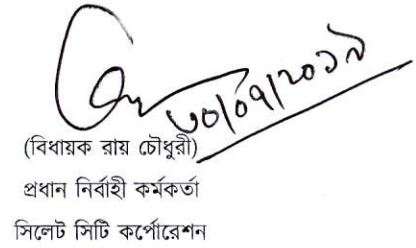 ৩০/০৭/২০১৯
(বিধায়ক রায় চৌধুরী)
প্রধান নির্বাহী কর্মকর্তা
সিলেট সিটি কর্পোরেশন